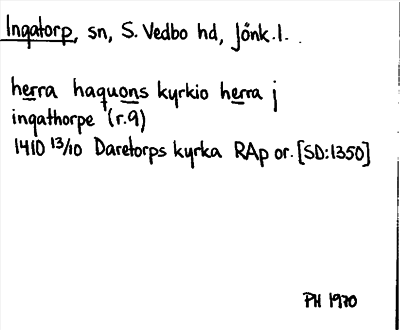 Ingatorp, sn, S. Vedbo hd, Jönk.l.
herra haquons kyrkio herra j
ingathorpe (r.9)
1410 13/10 Daretorps kyrka RAp or. [SD:1350]
PH 1970